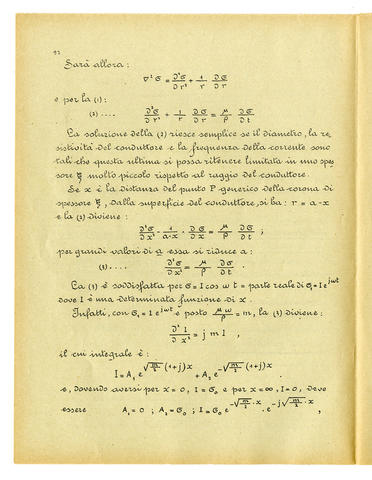 92
Sarà allora:
∇² σ = ∂²σ/∂r² + 1/r ∂σ/∂r
e per la (1):
(2) .... ∂²σ/∂r² + 1/r ∂σ/∂r = μ/ρ ∂σ/∂t
La soluzione della (2) riesce semplice se il diametro, la re,
sistività del conduttore e la frequenza della corrente sono
tali che questa ultima si possa ritenere limitata in uno spes
sore ξ molto piccolo rispetto al raggio del conduttore.
Se x è la distanza del punto P generico della corona di
spessore ξ, dalla superficie del conduttore, si ha: r = a-x
e la (2) diviene:
∂²σ/∂x² - 1/a-x · ∂σ/∂x = μ/ρ ∂σ/∂t ;
per grandi valori di a essa si riduce a:
(3) .... ∂²σ/∂x² = μ/ρ ∂σ/∂t .
La (3) è soddisfatta per σ = I cos ω t = parte reale di σ₁ = I e^jωt
dove I è una determinata funzione di x.
Infatti, con σ₁ = I e^jωt e posto μω/ρ = m, la (3) diviene:
∂²I/∂x² = j m I ,
il cui integrale è:
I = A₁ e^√m/2 (1+j)x + A₂ e^-√m/2 (1+j)x .
e, dovendo aversi per x = 0, I = σ₀ e per x = ∞, I = 0, deve
essere A₁ = 0 ; A₂ = σ₀ ; I = σ₀ e^-√m/2 · x · e^-j√m/2 · x ,